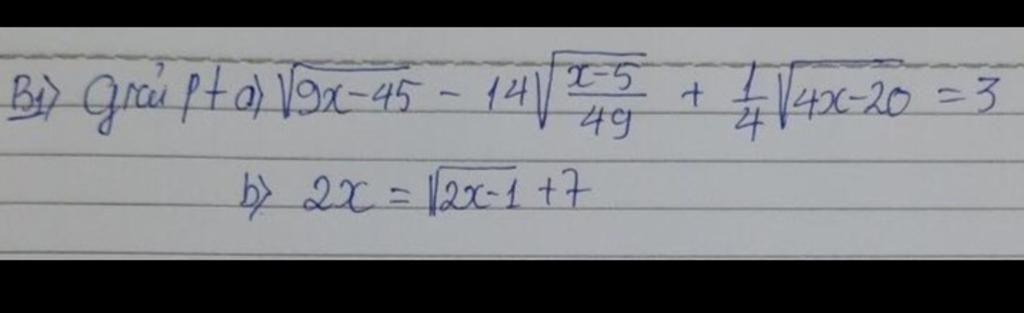 B1) Giải pt a) √(9x-45) - 14√((x-5)/49) + 1/4 √(4x-20) = 3
b) 2x = √(2x-1) + 7